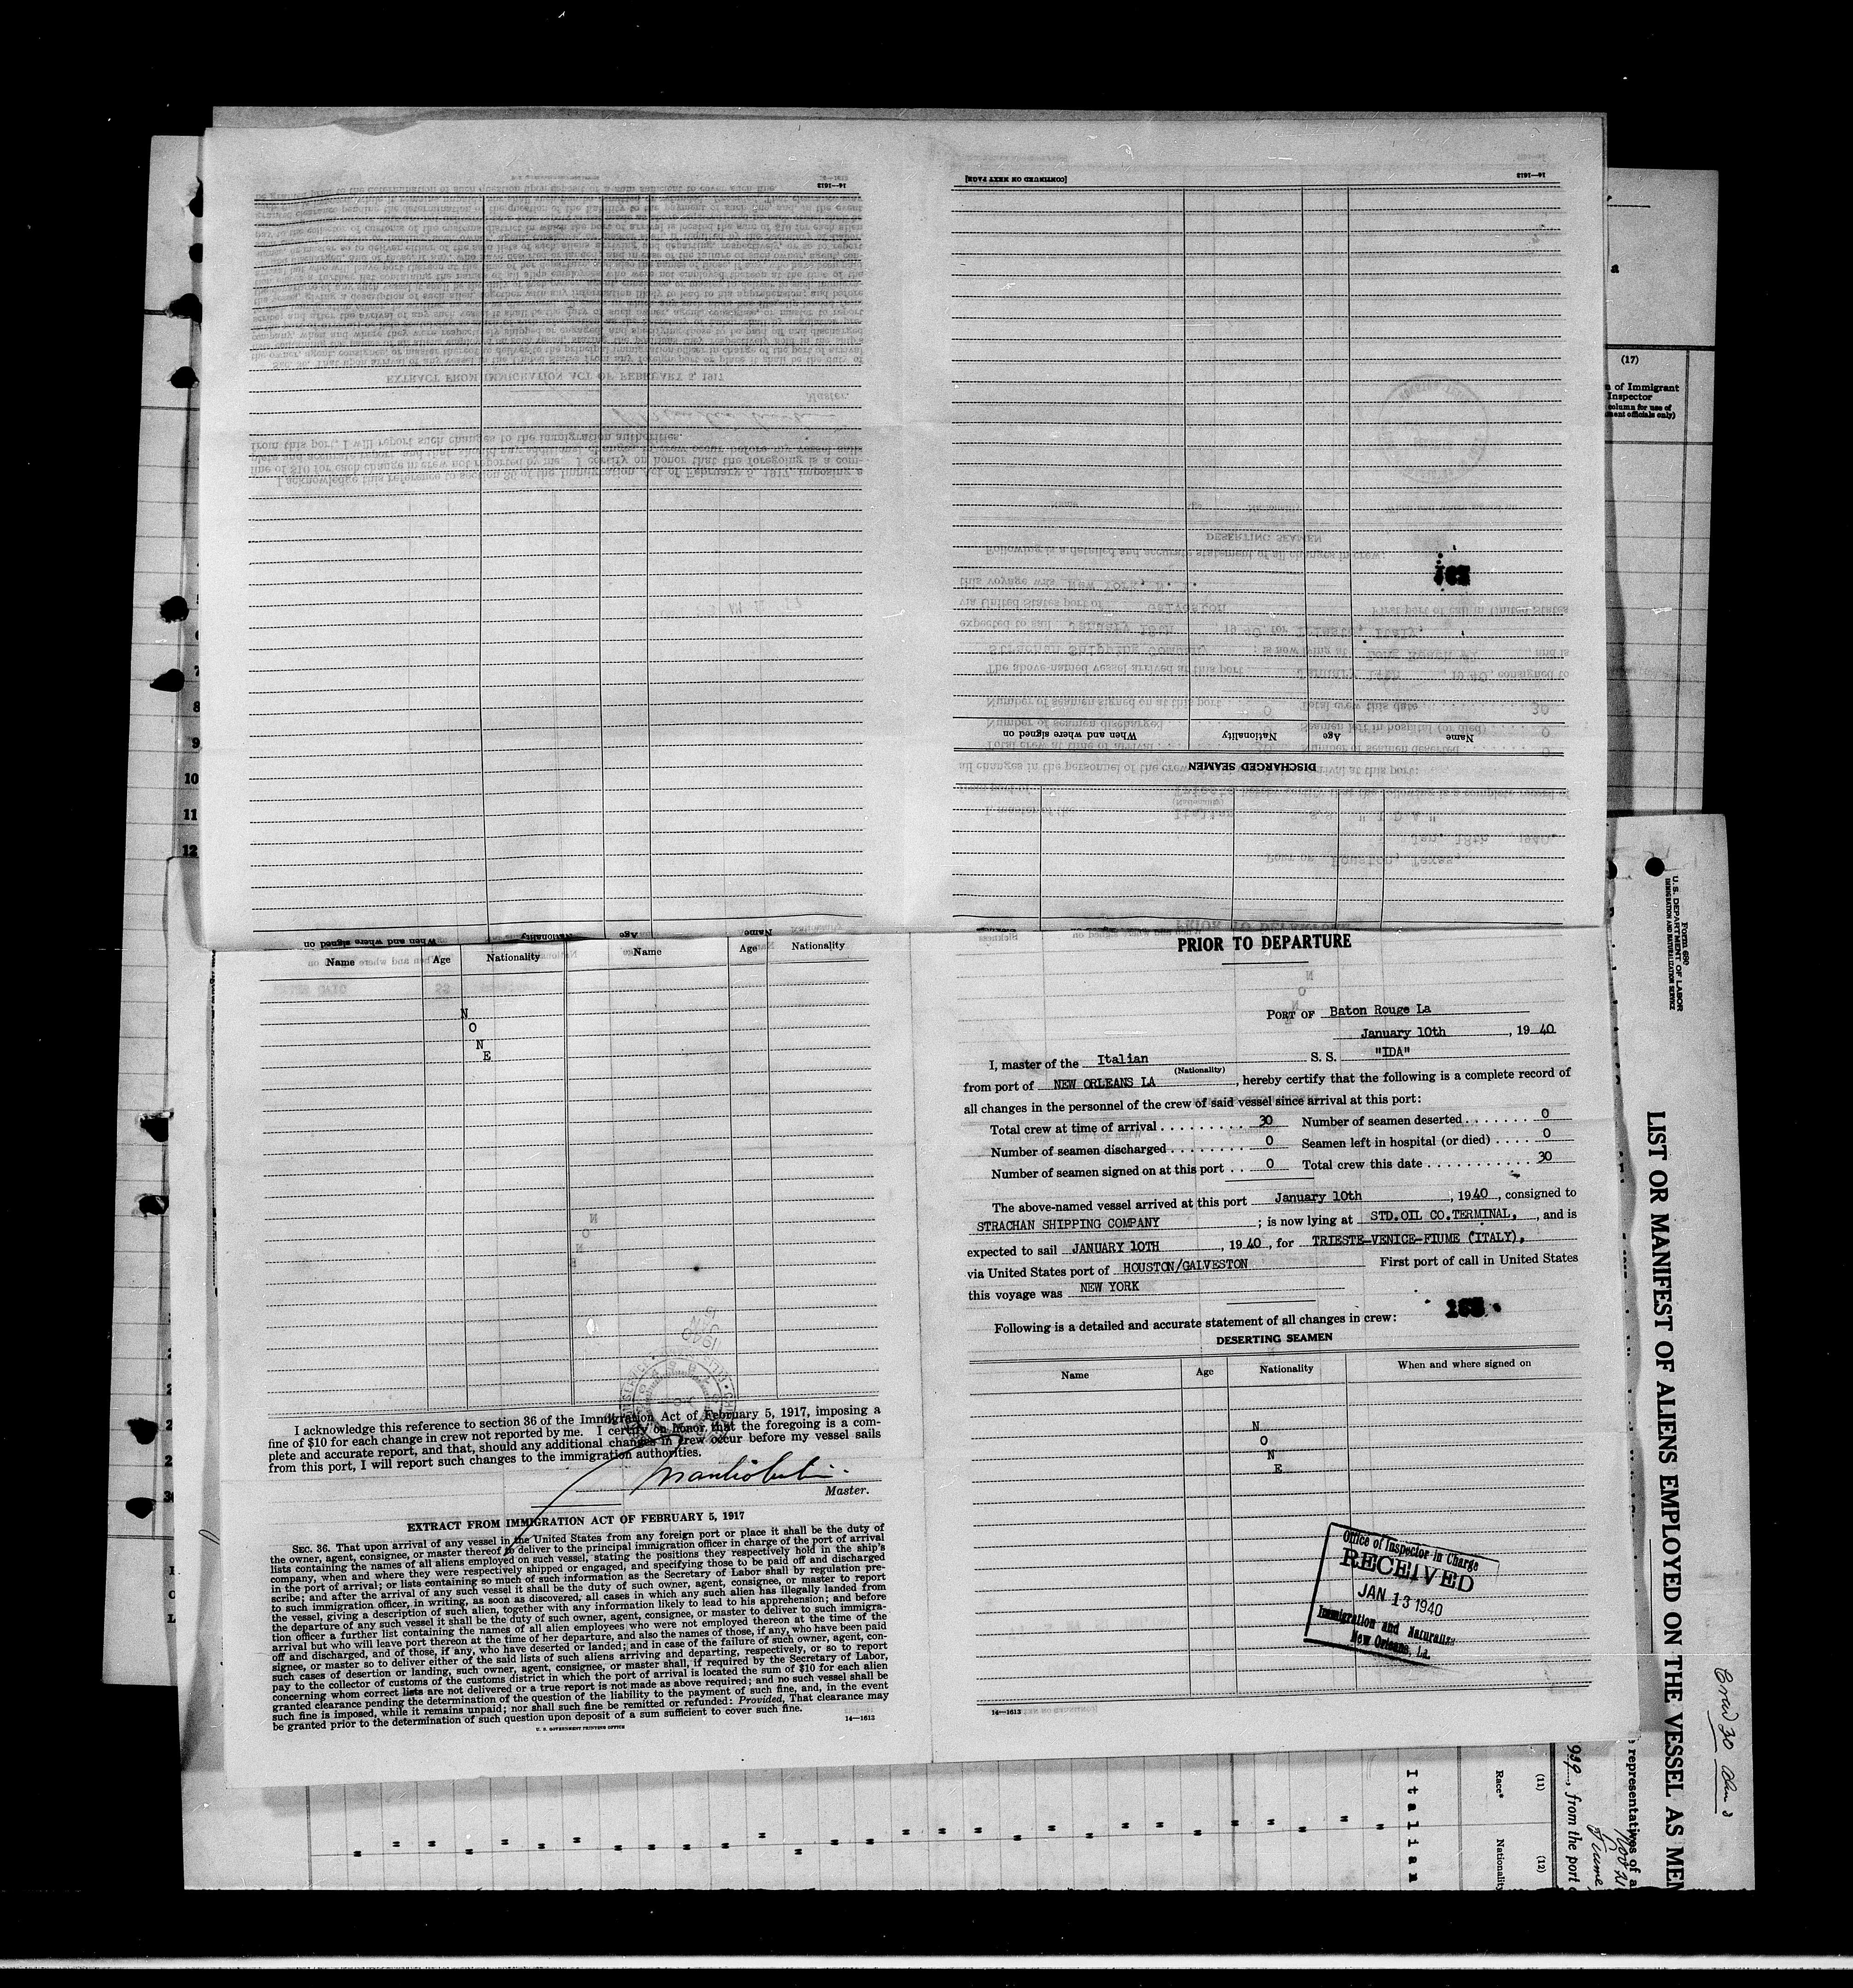 PRIOR TO DEPARTURE
PORT OF Baton Rouge La
January 10th, 19 40
I, master of the Italian S. S. "IDA"
(Nationality)
from port of NEW ORLEANS LA, hereby certify that the following is a complete record of
all changes in the personnel of the crew of said vessel since arrival at this port:
Total crew at time of arrival . . . . . . . . . 30 Number of seamen deserted . . . . . . . 0
Number of seamen discharged . . . . . . . . 0 Seamen left in hospital (or died) . . . . 0
Number of seamen signed on at this port . . 0 Total crew this date . . . . . . . . . . . 30
The above-named vessel arrived at this port January 10th, 19 40, consigned to
STRACHAN SHIPPING COMPANY; is now lying at STD.OIL CO.TERMINAL, and is
expected to sail JANUARY 10TH, 19 40, for TRIESTE-VENICE-FIUME (ITALY),
via United States port of HOUSTON/GALVESTON First port of call in United States
this voyage was NEW YORK
Following is a detailed and accurate statement of all changes in crew:
DESERTING SEAMEN
Name Age Nationality When and where signed on
N
O
N
E
Office of Inspector in Charge
RECEIVED
JAN 13 1940
Immigration and Naturaliza
New Orleans, La.
14—1613
Name Age Nationality Name Age Nationality
N
O
N
E
I acknowledge this reference to section 36 of the Immigration Act of February 5, 1917, imposing a
fine of $10 for each change in crew not reported by me. I certify on honor that the foregoing is a com-
plete and accurate report, and that, should any additional changes in crew occur before my vessel sails
from this port, I will report such changes to the immigration authorities.
Master.
EXTRACT FROM IMMIGRATION ACT OF FEBRUARY 5, 1917
SEC. 36. That upon arrival of any vessel in the United States from any foreign port or place it shall be the duty of
the owner, agent, consignee, or master thereof to deliver to the principal immigration officer in charge of the port of arrival
lists containing the names of all aliens employed on such vessel, stating the positions they respectively hold in the ship's
company, when and where they were respectively shipped or engaged, and specifying those to be paid off and discharged
in the port of arrival; or lists containing so much of such information as the Secretary of Labor shall by regulation pre-
scribe; and after the arrival of any such vessel it shall be the duty of such owner, agent, consignee, or master to report
to such immigration officer, in writing, as soon as discovered, all cases in which any such alien has illegally landed from
the vessel, giving a description of such alien, together with any information likely to lead to his apprehension; and before
the departure of any such vessel it shall be the duty of such owner, agent, consignee, or master to deliver to such immigra-
tion officer a further list containing the names of all alien employees who were not employed thereon at the time of the
arrival but who will leave port thereon at the time of her departure, and also the names of those, if any, who have been paid
off and discharged, and of those, if any, who have deserted or landed; and in case of the failure of such owner, agent, con-
signee, or master so to deliver either of the said lists of such aliens arriving and departing, respectively, or so to report
such cases of desertion or landing, such owner, agent, consignee, or master shall, if required by the Secretary of Labor,
pay to the collector of customs of the customs district in which the port of arrival is located the sum of $10 for each alien
concerning whom correct lists are not delivered or a true report is not made as above required; and no such vessel shall be
granted clearance pending the determination of the question of the liability to the payment of such fine, and, in the event
such fine is imposed, while it remains unpaid; nor shall such fine be remitted or refunded: Provided, That clearance may
be granted prior to the determination of such question upon deposit of a sum sufficient to cover such fine.
U. S. GOVERNMENT PRINTING OFFICE
14—1613
[CONTINUED ON NEXT PAGE]
14—1613
DISCHARGED SEAMEN
Name Age Nationality When and where signed on
14—1613
Name Age Nationality When and where signed on
(17)
of Immigrant
Inspector
column for use of
officials only)
7
8
9
10
11
12
Form 680
U. S. DEPARTMENT OF LABOR
IMMIGRATION AND NATURALIZATION SERVICE
LIST OR MANIFEST OF ALIENS EMPLOYED ON THE VESSEL AS MEM
representatives of a
, from the port
Fiume
(11)
Race*
(12)
Nationality
Italian
Crew 30